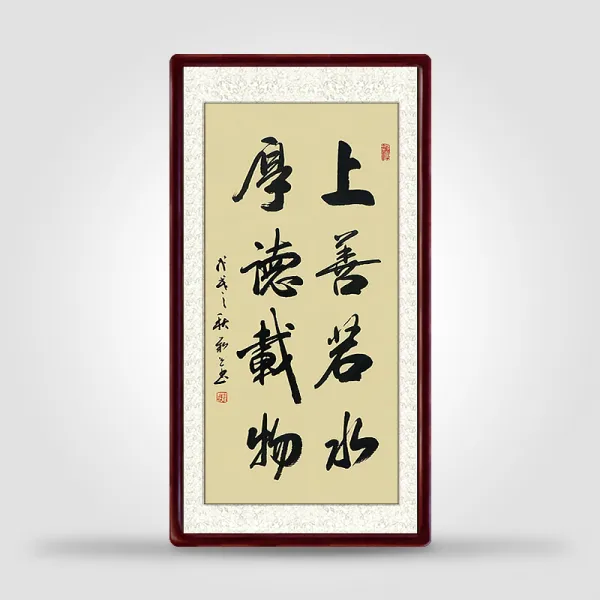 上善若水
厚德載物
戊戌之秋